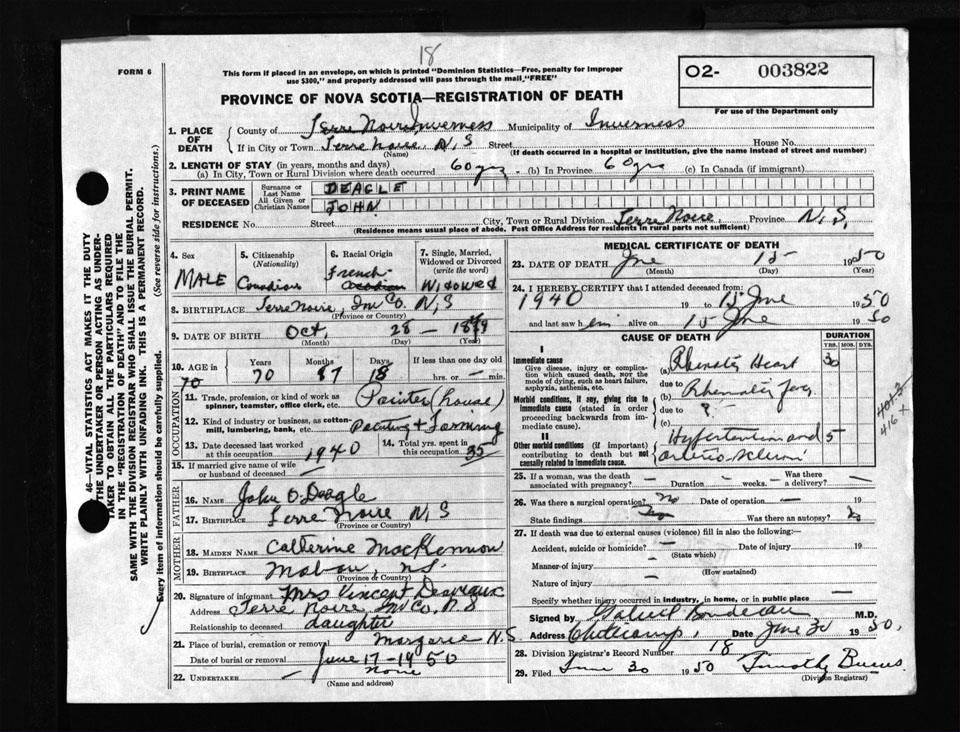 18
FORM 6
This form if placed in an envelope, on which is printed "Dominion Statistics—Free, penalty for improper
use $300," and properly addressed will pass through the mail "FREE"
O2- 003822
For use of the Department only
PROVINCE OF NOVA SCOTIA—REGISTRATION OF DEATH
46—VITAL STATISTICS ACT MAKES IT THE DUTY
OF THE UNDERTAKER OR PERSON ACTING AS UNDER-
TAKER TO OBTAIN ALL THE PARTICULARS REQUIRED
IN THE "REGISTRATION OF DEATH" AND TO FILE THE
SAME WITH THE DIVISION REGISTRAR WHO SHALL ISSUE THE BURIAL PERMIT.
WRITE PLAINLY WITH UNFADING INK. THIS IS A PERMANENT RECORD.
Every item of information should be carefully supplied. (See reverse side for instructions.)
1. PLACE OF DEATH
County of Terre Noire Inverness Municipality of Inverness
If in City or Town Terre Noire, N,S Street House No.
(Name) (If death occurred in a hospital or institution, give the name instead of street and number)
2. LENGTH OF STAY (in years, months and days)
(a) In City, Town or Rural Division where death occurred 60 yrs (b) In Province 60 yrs (c) In Canada (if immigrant)
3. PRINT NAME OF DECEASED
Surname or Last Name DEAGLE
All Given or Christian Names JOHN
RESIDENCE No. Street City, Town or Rural Division Terre Noire, Province N,S,
(Residence means usual place of abode. Post Office Address for residents in rural parts not sufficient)
4. Sex MALE
5. Citizenship (Nationality) Canadian
6. Racial Origin French
7. Single, Married, Widowed or Divorced (write the word) Widowed
8. BIRTHPLACE Terre Noire, Inv Co, N,S
(Province or Country)
9. DATE OF BIRTH Oct, 28 – 1879
(Month) (Day) (Year)
10. AGE in Years 70 Months 7 Days 18 If less than one day old hrs. or min.
70
OCCUPATION
11. Trade, profession, or kind of work as spinner, teamster, office clerk, etc. Painter (house)
12. Kind of industry or business, as cotten-mill, lumbering, bank, etc. Painting + Farming
13. Date deceased last worked at this occupation 1940
14. Total yrs. spent in this occupation 35
15. If married give name of wife or husband of deceased —
FATHER
16. NAME John O. Deagle
17. BIRTHPLACE Terre Noire N,S
(Province or Country)
MOTHER
18. MAIDEN NAME Catterine MacKennon
19. BIRTHPLACE Mabou, N.S.
(Province or Country)
20. Signature of informant Mrs Vincent Desveaux
Address Terre Noire, Inv Co, N.S
Relationship to deceased daughter
21. Place of burial, cremation or removal Margaree N.S.
Date of burial or removal June 17 - 1950
22. UNDERTAKER None
(Name and address)
MEDICAL CERTIFICATE OF DEATH
23. DATE OF DEATH Jne 15 1950
(Month) (Day) (Year)
24. I HEREBY CERTIFY that I attended deceased from:
1940 19 to 15 Jne 1950
and last saw him alive on 15 Jne 1950
CAUSE OF DEATH DURATION
YRS. MOS. DYS.
I
Immediate cause
Give disease, injury or complication which caused death, not the mode of dying, such as heart failure, asphyxia, asthenia, etc.
(a) Rhematic Heart 30
due to
Morbid conditions, if any, giving rise to immediate cause (stated in order proceeding backwards from immediate cause)
(b) Rhematic
due to ?
(c)
II
Other morbid conditions (if important) contributing to death but not causally related to immediate cause.
Hypertention and 5
416 +
25. If a woman, was the death associated with pregnancy? — Duration — weeks. Was there a delivery? —
26. Was there a surgical operation? No Date of operation — 19
State findings Was there an autopsy?
27. If death was due to external causes (violence) fill in also the following:—
Accident, suicide or homicide? — Date of injury 19
(State which)
Manner of injury —
(How sustained)
Nature of injury —
Specify whether injury occurred in industry, in home, or in public place —
Signed by Gabriel Boudreau M.D.
Address Cheticamp, Date June 30 1950.
28. Division Registrar's Record Number 18
29. Filed June 30 1950 Timothy Burns
(Division Registrar)